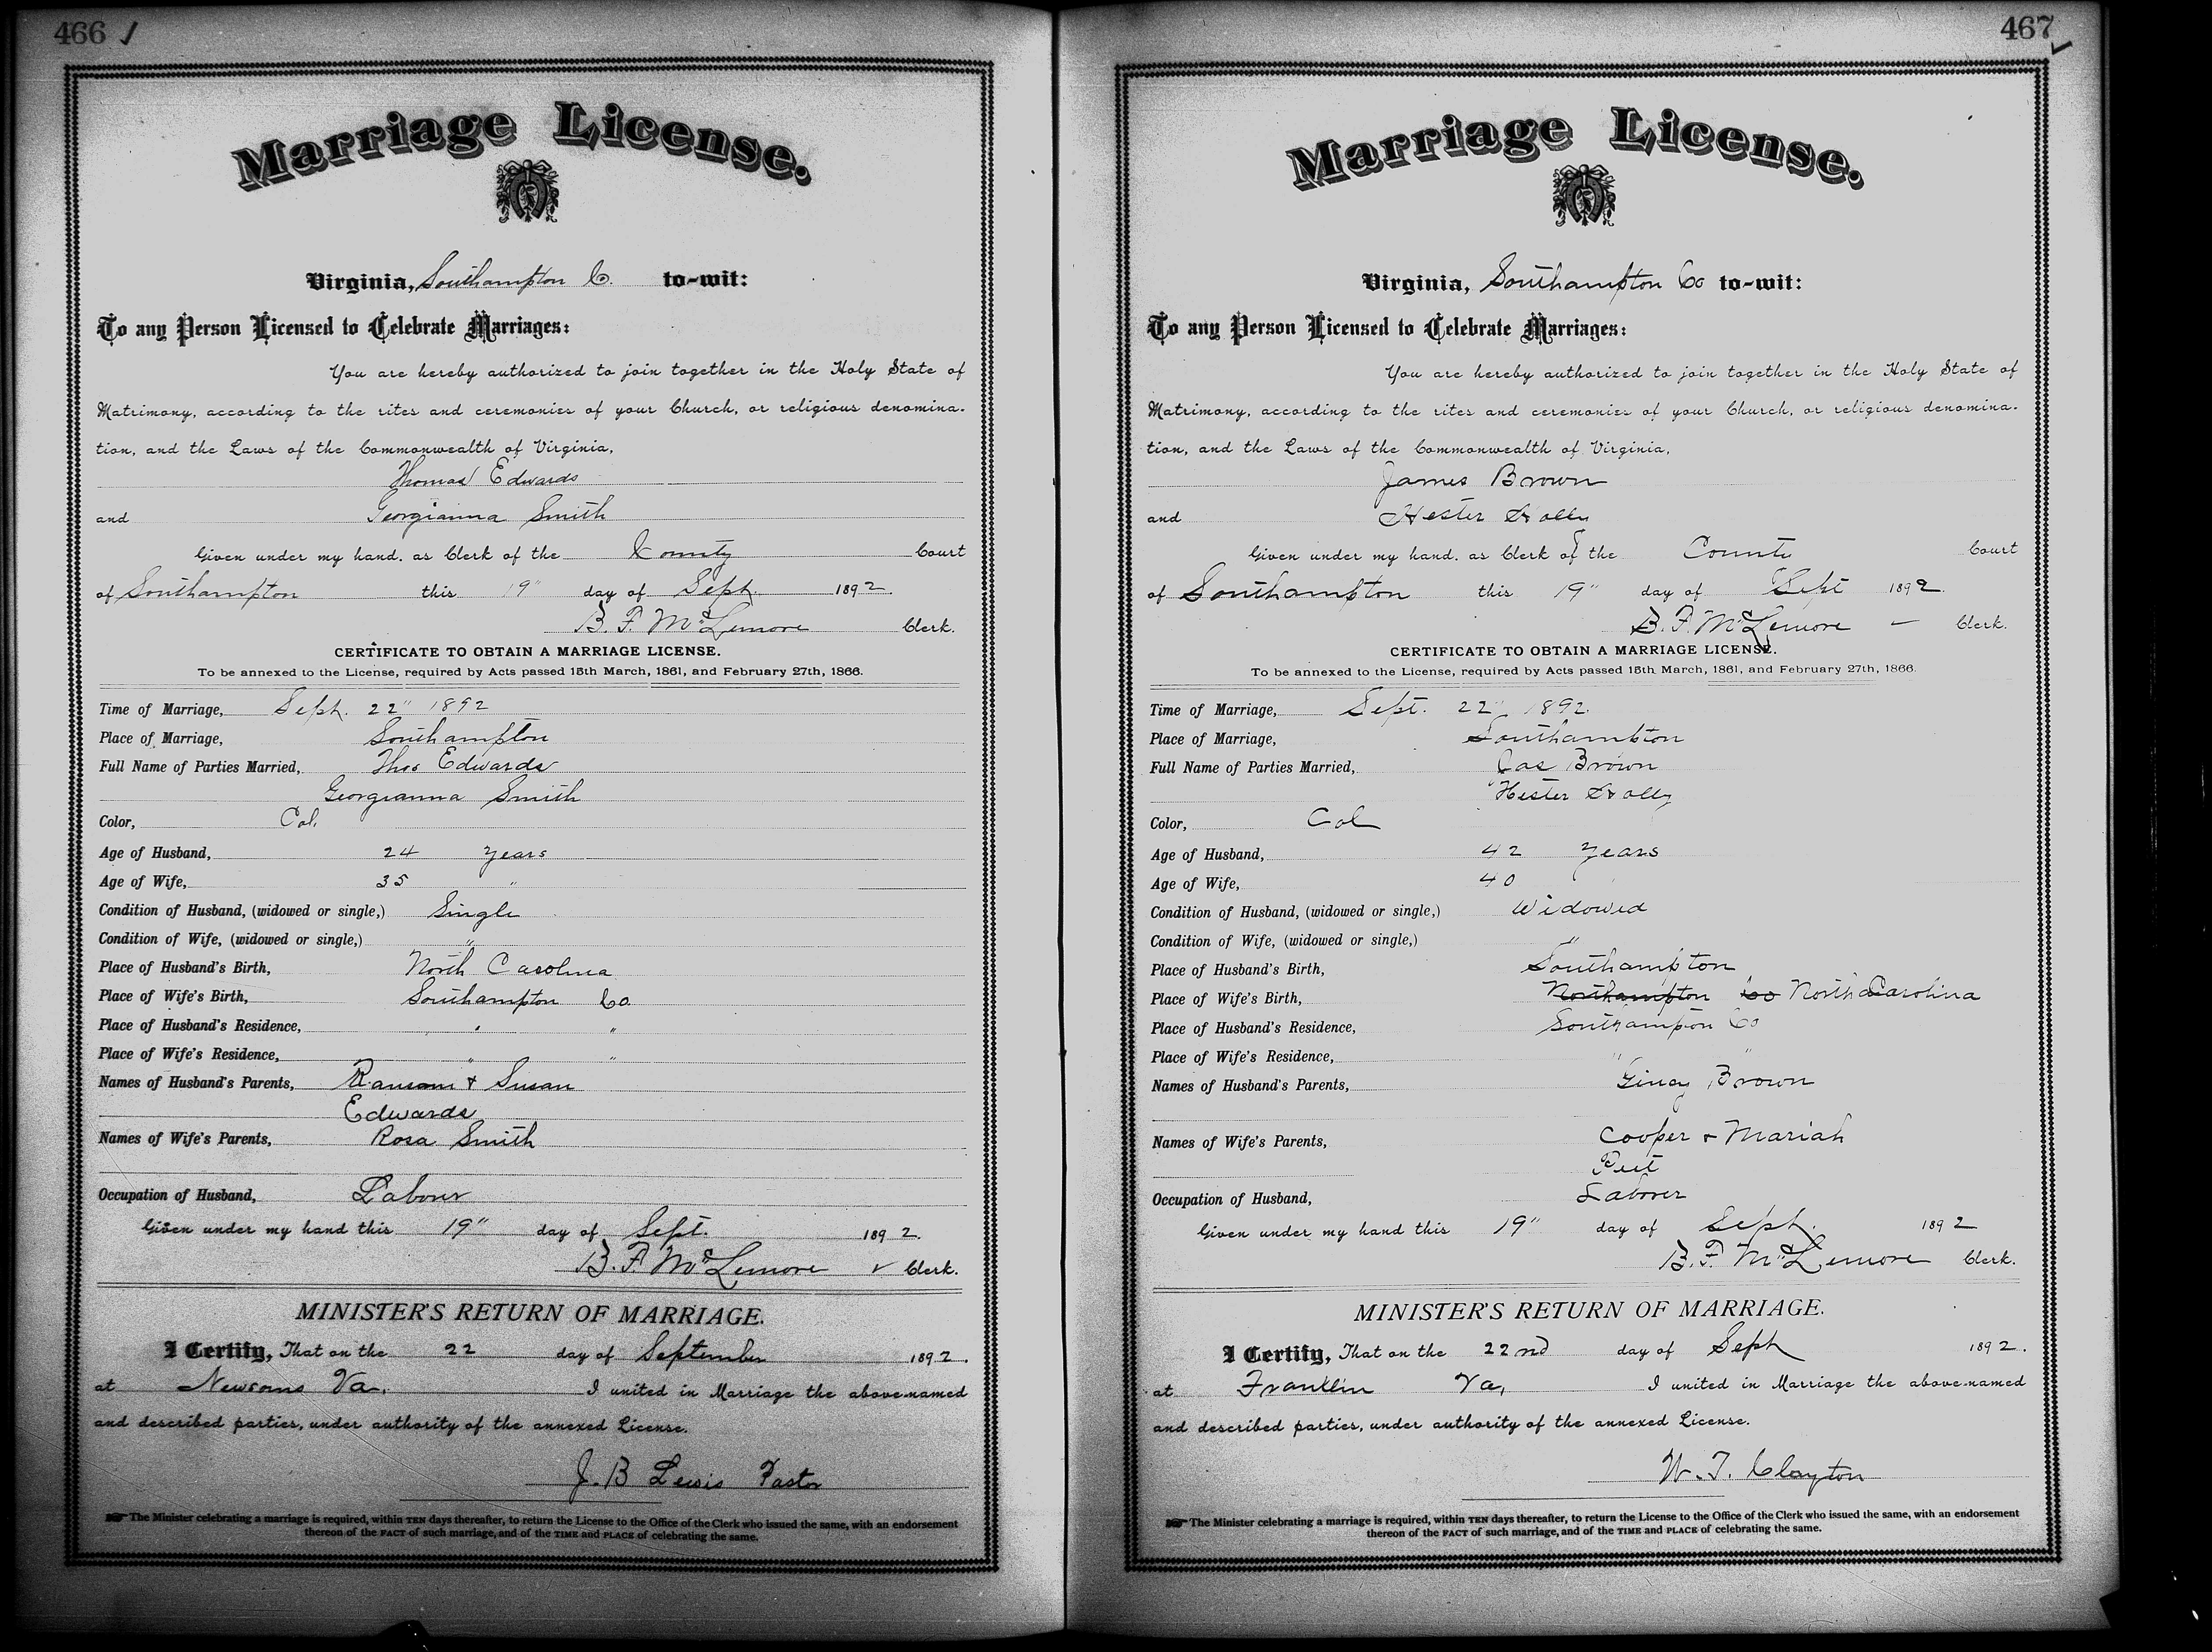 466
Marriage License.
Virginia, Southampton Co. to-wit:
To any Person Licensed to Celebrate Marriages:
You are hereby authorized to join together in the Holy State of
Matrimony, according to the rites and ceremonies of your Church, or religious denomina-
tion, and the Laws of the Commonwealth of Virginia,
Thomas Edwards
and Georgianna Smith
Given under my hand, as Clerk of the County Court
of Southampton this 19" day of Sept. 1892.
B. F. McLemore Clerk.
CERTIFICATE TO OBTAIN A MARRIAGE LICENSE.
To be annexed to the License, required by Acts passed 15th March, 1861, and February 27th, 1866.
Time of Marriage, Sept. 22" 1892
Place of Marriage, Southampton
Full Name of Parties Married, Thos Edwards
Georgianna Smith
Color, Col.
Age of Husband, 24 years
Age of Wife, 35 "
Condition of Husband, (widowed or single,) Single
Condition of Wife, (widowed or single,) "
Place of Husband's Birth, North Carolina
Place of Wife's Birth, Southampton Co.
Place of Husband's Residence, " "
Place of Wife's Residence, " "
Names of Husband's Parents, Ransom & Susan
Edwards
Names of Wife's Parents, Rosa Smith
Occupation of Husband, Laborer
Given under my hand this 19" day of Sept. 1892.
B. F. McLemore Clerk.
MINISTER'S RETURN OF MARRIAGE.
I Certify, That on the 22 day of September 1892.
at Newsoms Va. I united in Marriage the above-named
and described parties, under authority of the annexed License.
J. B Lewis Pastor
The Minister celebrating a marriage is required, within TEN days thereafter, to return the License to the Office of the Clerk who issued the same, with an endorsement
thereof of the FACT of such marriage, and of the TIME and PLACE of celebrating the same.
467
Marriage License.
Virginia, Southampton Co to-wit:
To any Person Licensed to Celebrate Marriages:
You are hereby authorized to join together in the Holy State of
Matrimony, according to the rites and ceremonies of your Church, or religious denomina-
tion, and the Laws of the Commonwealth of Virginia,
James Brown
and Hester Holly
Given under my hand, as Clerk of the County Court
of Southampton this 19" day of Sept 1892.
B. F. McLemore Clerk.
CERTIFICATE TO OBTAIN A MARRIAGE LICENSE.
To be annexed to the License, required by Acts passed 15th March, 1861, and February 27th, 1866.
Time of Marriage, Sept. 22" 1892.
Place of Marriage, Southampton
Full Name of Parties Married, Jas Brown
Hester Holly
Color, Col
Age of Husband, 42 years
Age of Wife, 40
Condition of Husband, (widowed or single,) Widowed
Condition of Wife, (widowed or single,) "
Place of Husband's Birth, Southampton
Place of Wife's Birth, Northampton Co North Carolina
Place of Husband's Residence, Southampton Co
Place of Wife's Residence, " "
Names of Husband's Parents, Brown
Names of Wife's Parents, Cooper & Mariah
Occupation of Husband, Laborer
Given under my hand this 19" day of Sept. 1892
B. F. McLemore Clerk.
MINISTER'S RETURN OF MARRIAGE.
I Certify, That on the 22nd day of Sept 1892.
at Franklin Va, I united in Marriage the above-named
and described parties, under authority of the annexed License.
W. T. Clayton
The Minister celebrating a marriage is required, within TEN days thereafter, to return the License to the Office of the Clerk who issued the same, with an endorsement
thereon of the FACT of such marriage, and of the TIME and PLACE of celebrating the same.